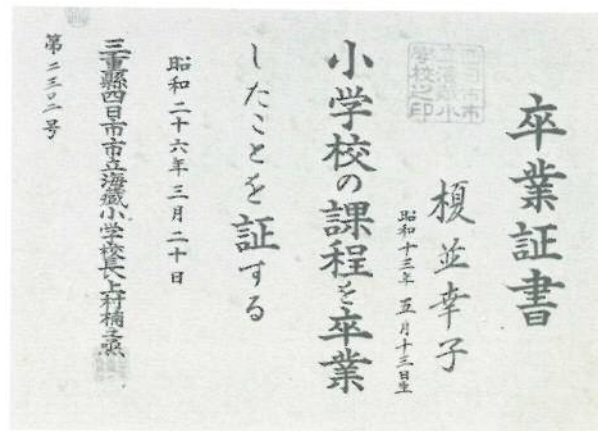 卒業証書
榎並幸子
昭和十三年五月十三日生
小学校の課程を卒業
したことを証する
昭和二十六年三月二十日
三重縣四日市市立海蔵小学校長上村楠
第二三〇二号